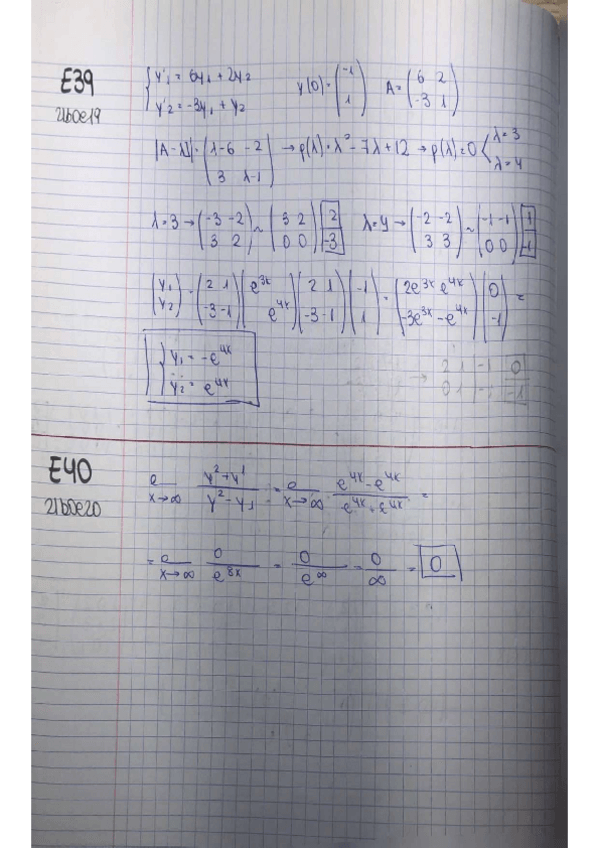 E39
21b0e19
{ y'1 = 6y1 + 2y2
y'2 = -3y1 + y2
y(0) = (-1 1)
A = (6 2 -3 1)
|A-λI| = (λ-6 -2 3 λ-1) → p(λ) = λ² - 7λ + 12 → p(λ) = 0 < λ = 3 λ = 4
λ = 3 → (-3 -2 3 2) ~ (3 2 0 0) 2 -3 λ = 4 → (-2 -2 3 3) ~ (-1 -1 0 0) 1 -1
(y1 y2) = (2 1 -3 -1) (e^3x e^4x) (2 1 -3 -1) (-1 1) = (2e^3x e^4x -3e^3x -e^4x) (0 -1) =
{ y1 = -e^4x
y2 = e^4x
→ 2 1 -1 0
0 1 -1
E40
21b0e20
e x→∞ y²+y1 / y²-y1 = e x→∞ e^4x - e^4x / e^4x + e^4x =
= e x→∞ 0 / e^8x = 0 / e^∞ = 0 / ∞ = 0